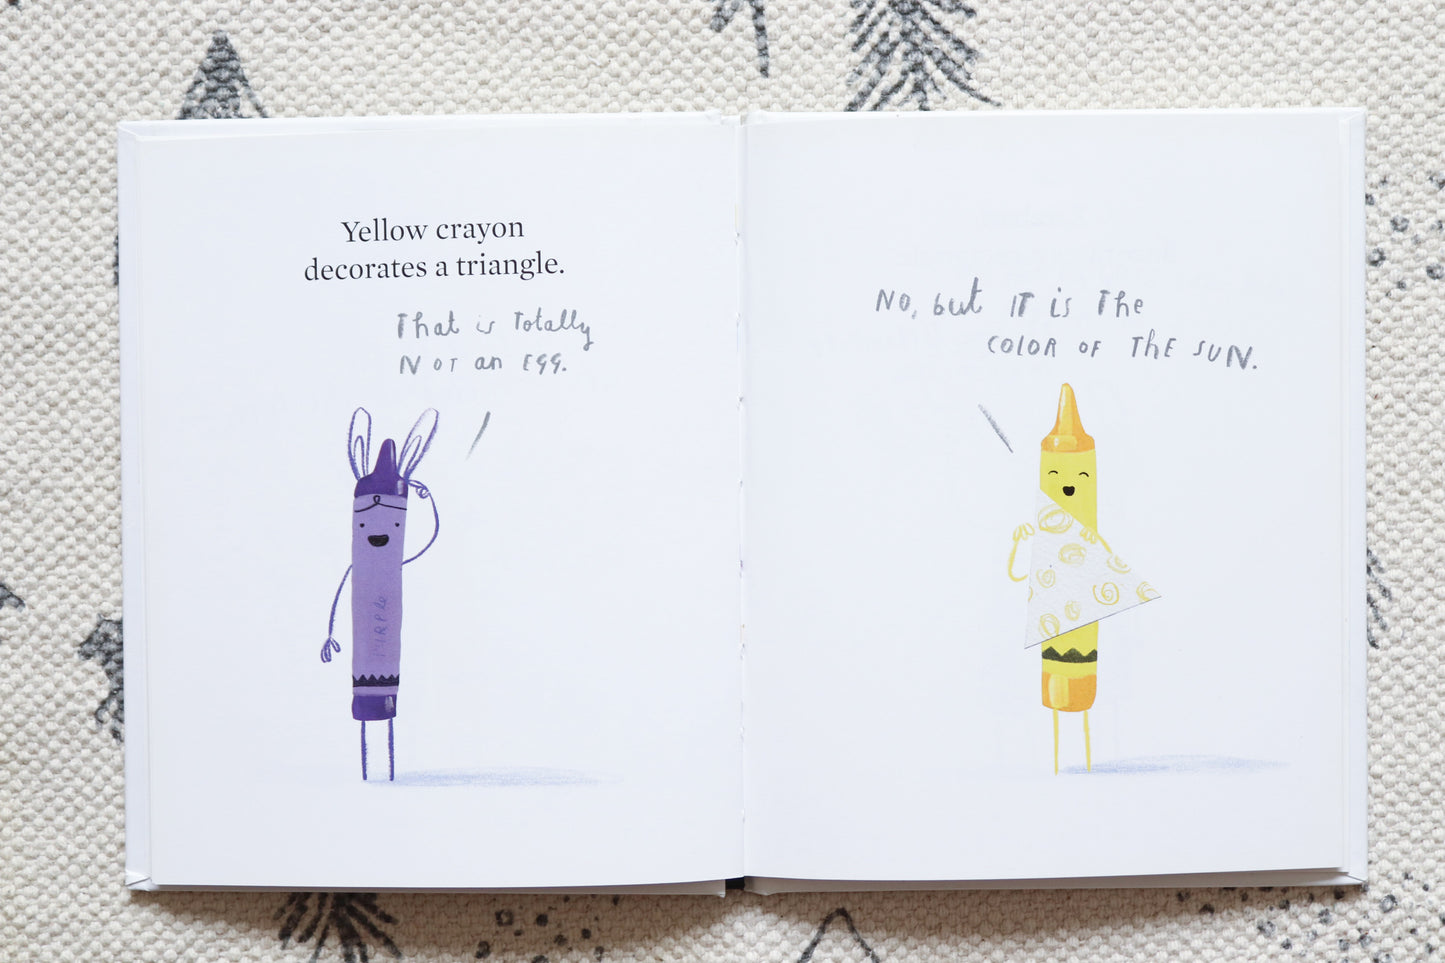 Yellow crayon
decorates a triangle.
That is Totally
NOT an EGG.
PURPLE
No, but IT is The
COLOR OF THE SUN.